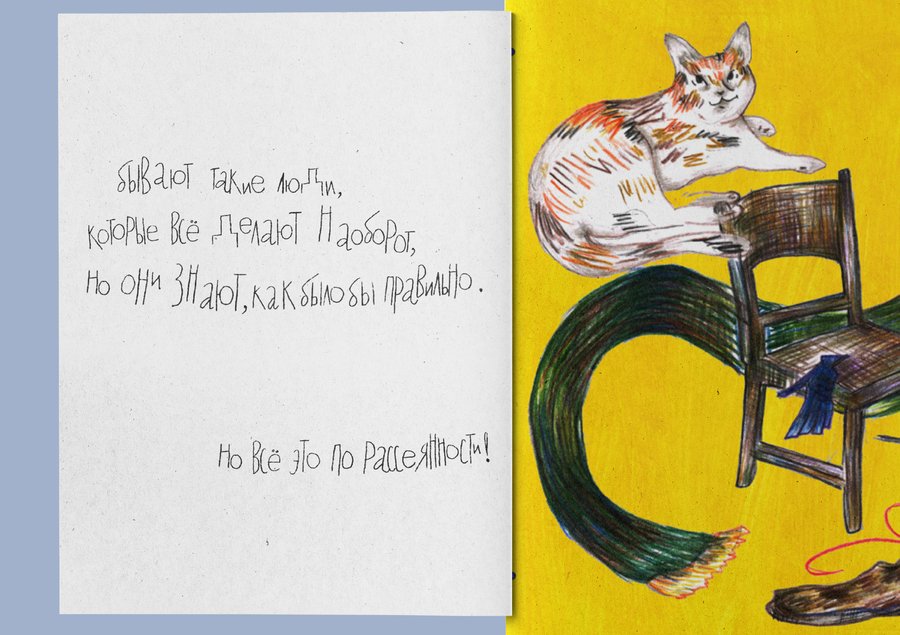 бывают такие люди,
которые всё делают наоборот,
но они знают, как было бы правильно.
но всё это по рассеянности!